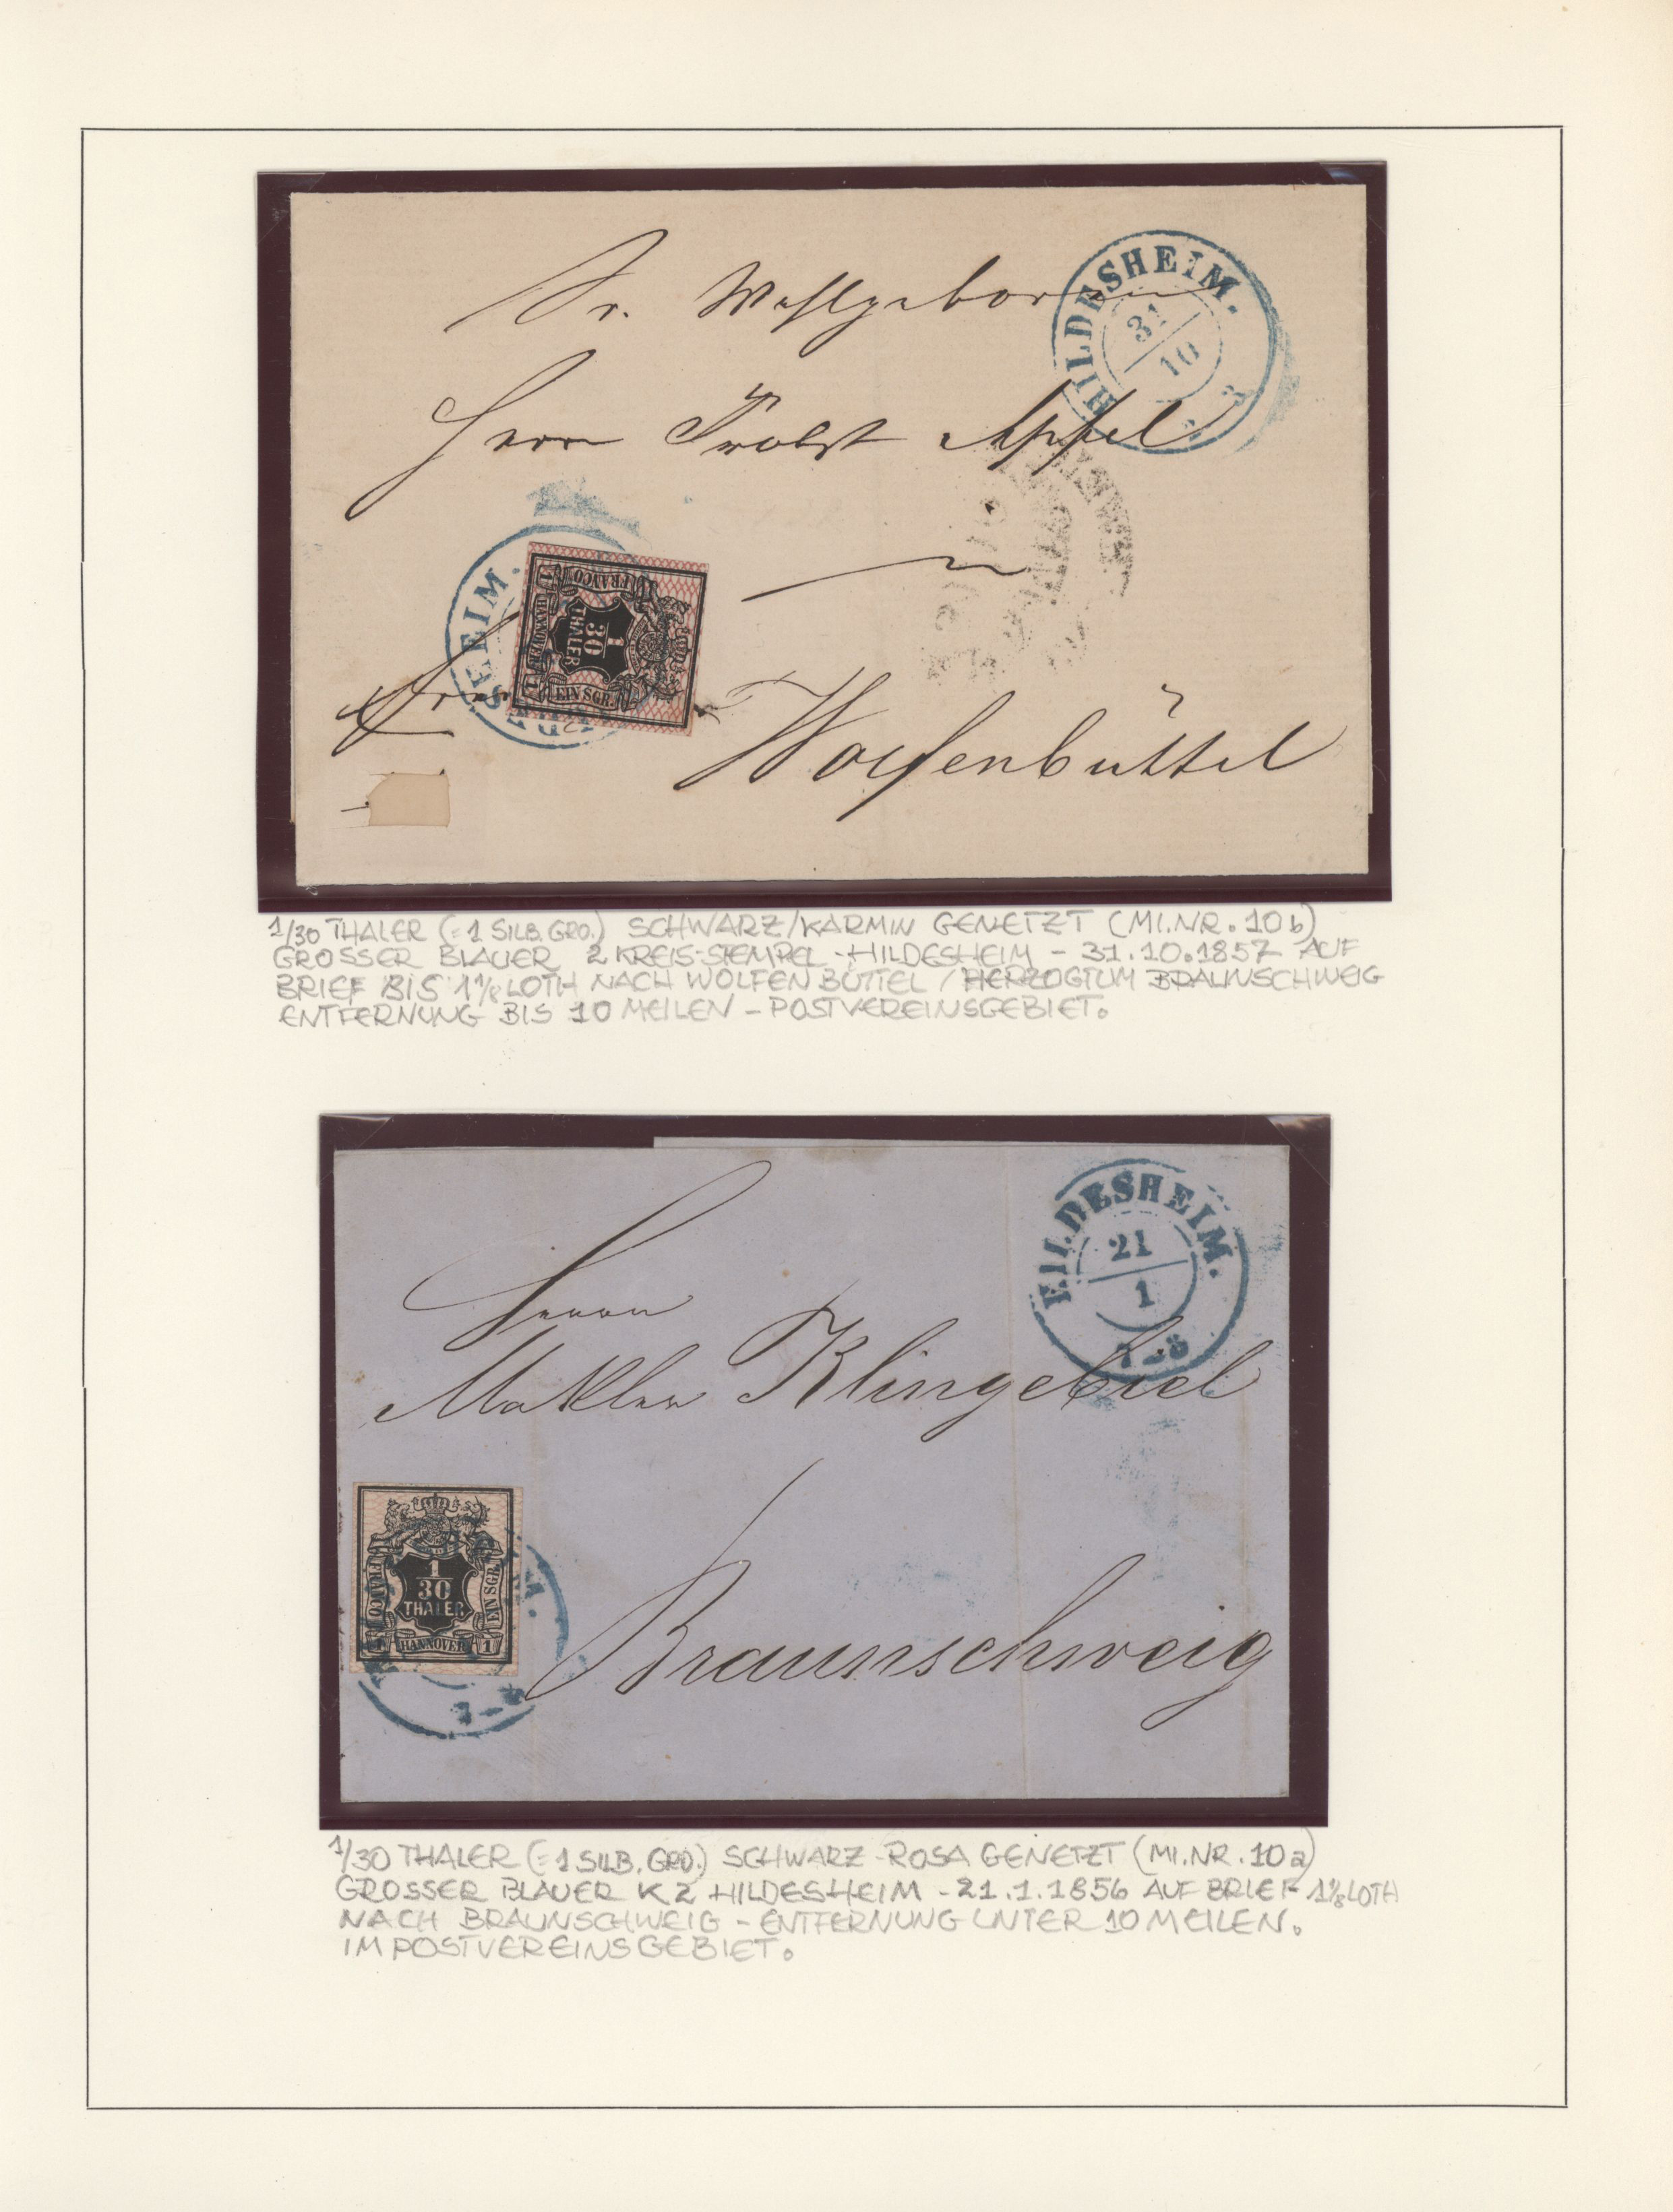 Sr. Wohlgeboren
Herrn Probst Apfel
Wolfenbüttel
HILDESHEIM.
31
10
3
SHEIM.
FRANCO
1
HANNOVER
1
1
30
THALER
EIN SGR.
1/30 THALER (=1 SILB. GRO.) SCHWARZ/KARMIN GENETZT (MI.NR. 10 b)
GROSSER BLAUER 2 KREIS-STEMPEL - HILDESHEIM - 31.10.1857 AUF
BRIEF BIS 1 1/8 LOTH NACH WOLFENBÜTTEL / HERZOGTUM BRAUNSCHWEIG
ENTFERNUNG BIS 10 MEILEN - POSTVEREINSGEBIET.
HILDESHEIM.
21
1
7-8
Herrn
Makler Klingebiel
Braunschweig
1
30
THALER
FRANCO
EIN SGR.
1 HANNOVER 1
M.
7-8
1/30 THALER (=1 SILB. GRO.) SCHWARZ-ROSA GENETZT (MI.NR. 10 a)
GROSSER BLAUER K2 HILDESHEIM - 21.1.1856 AUF BRIEF 1 1/8 LOTH
NACH BRAUNSCHWEIG - ENTFERNUNG UNTER 10 MEILEN.
IM POSTVEREINSGEBIET.